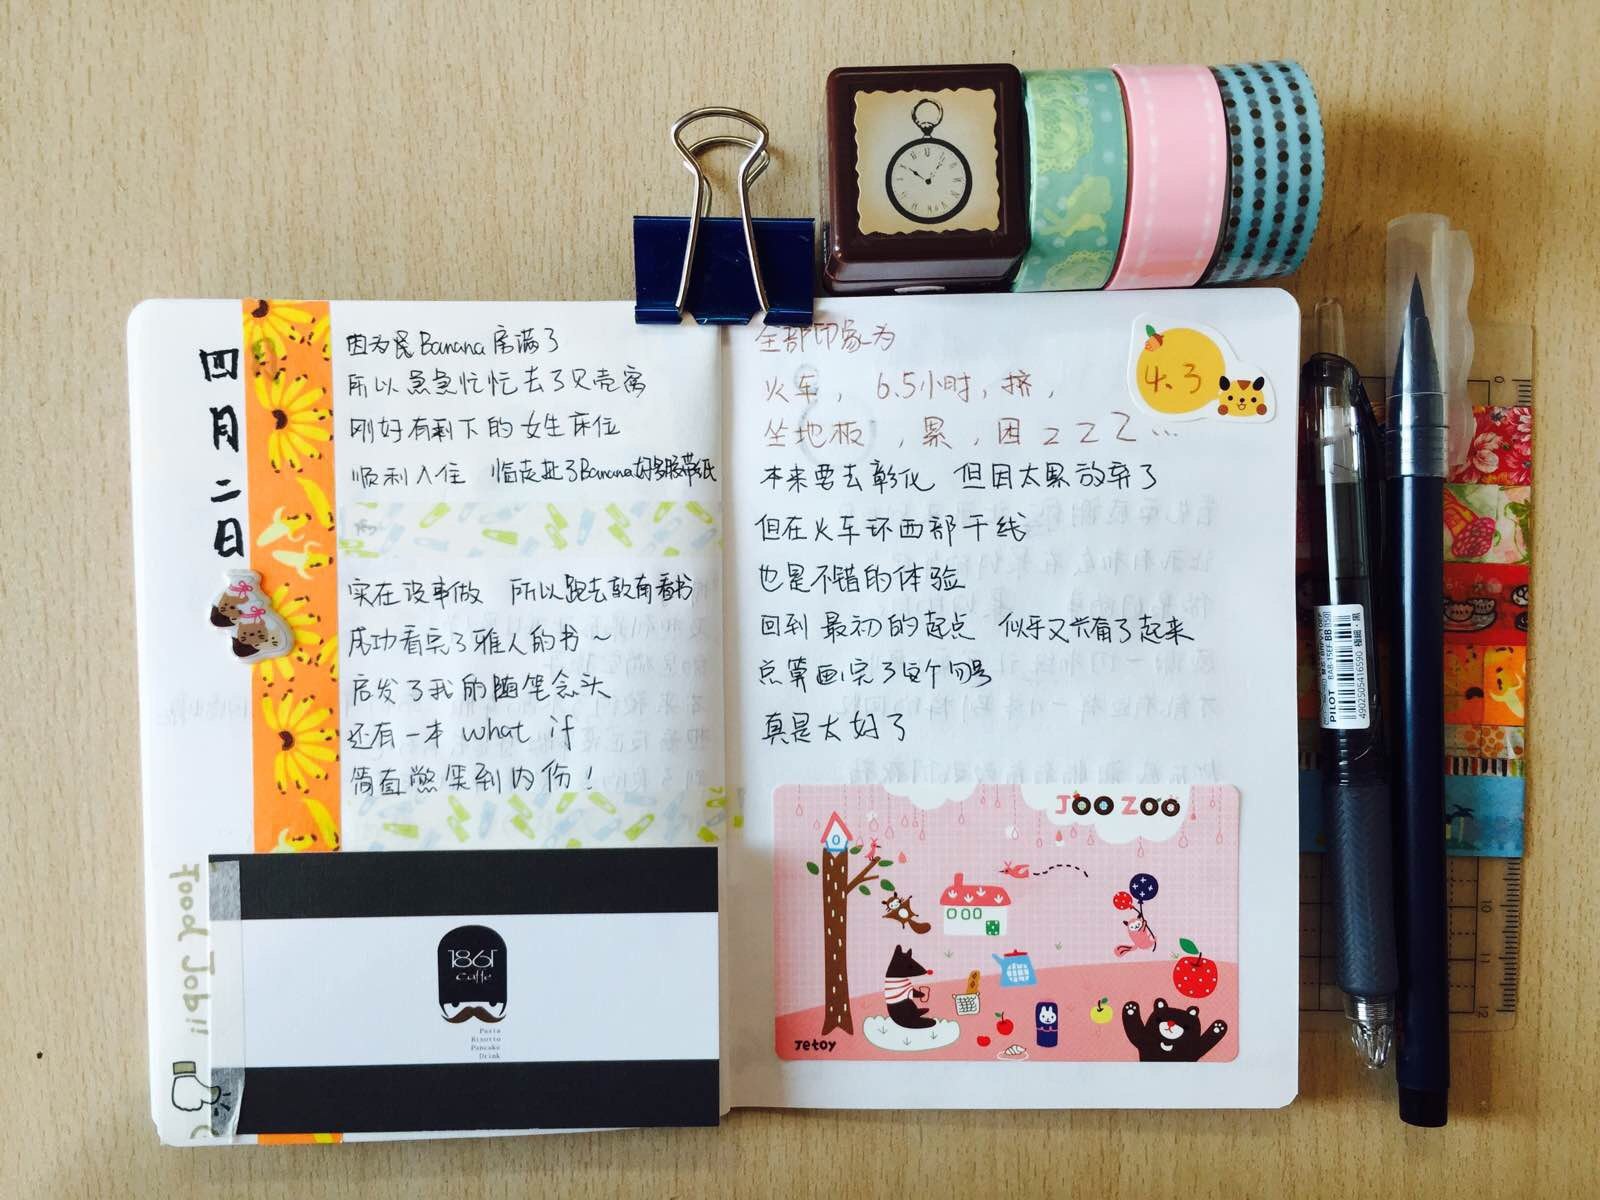 四月二日
因为 Banana 房满了
所以急急忙忙去了贝壳窝
刚好有剩下的女生床位
顺利入住 临走扯了Banana好多胶带纸
实在没事做 所以跑去敦南看书
成功看完了雅人的书~
启发了我的随笔念头
还有一本 what if
简直憋笑到内伤!
Food Job!!
1861
caffe
Pasta
Risotto
Pancake
Drink
全部印象为
火车, 6.5小时,挤,
坐地板,累,困ZZZ...
本来要去彰化 但因太累放弃了
但在火车环西部干线
也是不错的体验
回到最初的起点 似乎又有了起来
总算画完了这个句号
真是太好了
4.3
JOO ZOO
Jetoy
PILOT BAB-15EF-BB
4902505416590 極細・黒
0
10
11
12